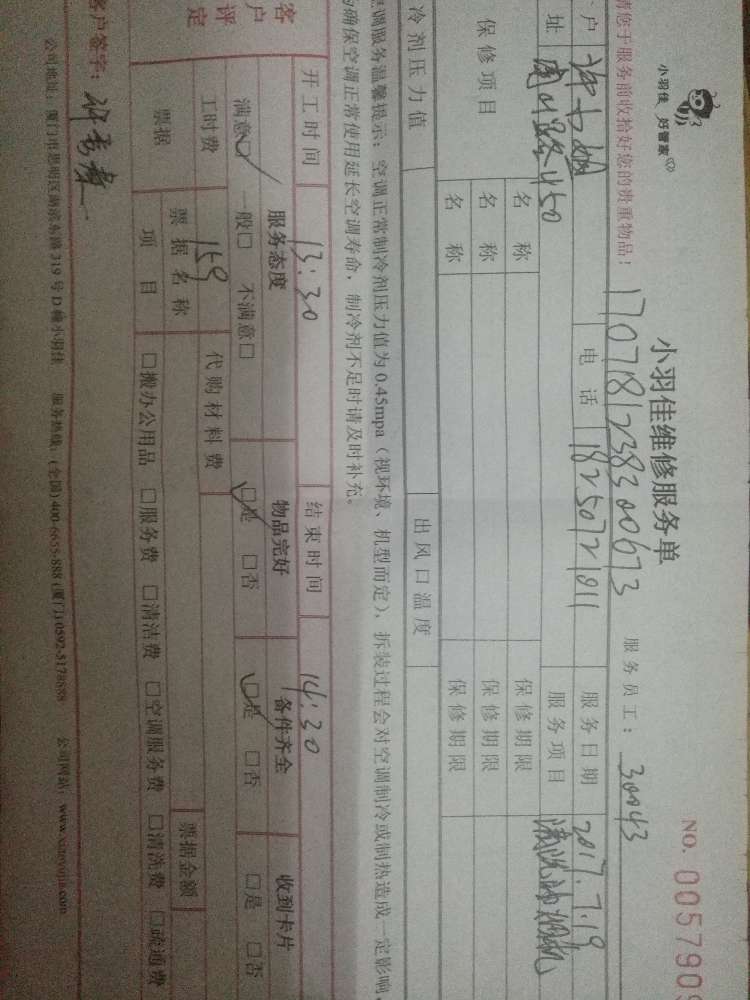 小羽佳 好管家
小羽佳维修服务单
NO. 0057909
请您于服务前收拾好您的贵重物品!
1707181238300673
服务员工: 30043
户
电话 18250721011
服务日期 2017.7.19
址
450
服务项目 清洗油烟机
保修项目
名称 保修期限
名称 保修期限
名称 保修期限
冷剂压力值 出风口温度
空调服务温馨提示: 空调正常制冷剂压力值为0.45mpa (视环境、机型而定), 拆装过程会对空调制冷或制热造成一定影响,
为确保空调正常使用延长空调寿命, 制冷剂不足时请及时补充。
开工时间 13:30 结束时间 14:30
客户评定
服务态度 物品完好 备件齐全 收到卡片
满意□ 一般□ 不满意□ □是 □否 □是 □否 □是 □否
工时费 159 代购材料费
票据 票据名称 票据金额
项目 □搬办公用品 □服务费 □清洁费 □空调服务费 □清洗费 □疏通费
客户签字:
公司地址: 厦门市思明区湖滨东路319号D幢小羽佳 服务热线: (全国) 400-6655-888 (厦门) 0592-5178888 公司网站: www.xiaoyujia.com